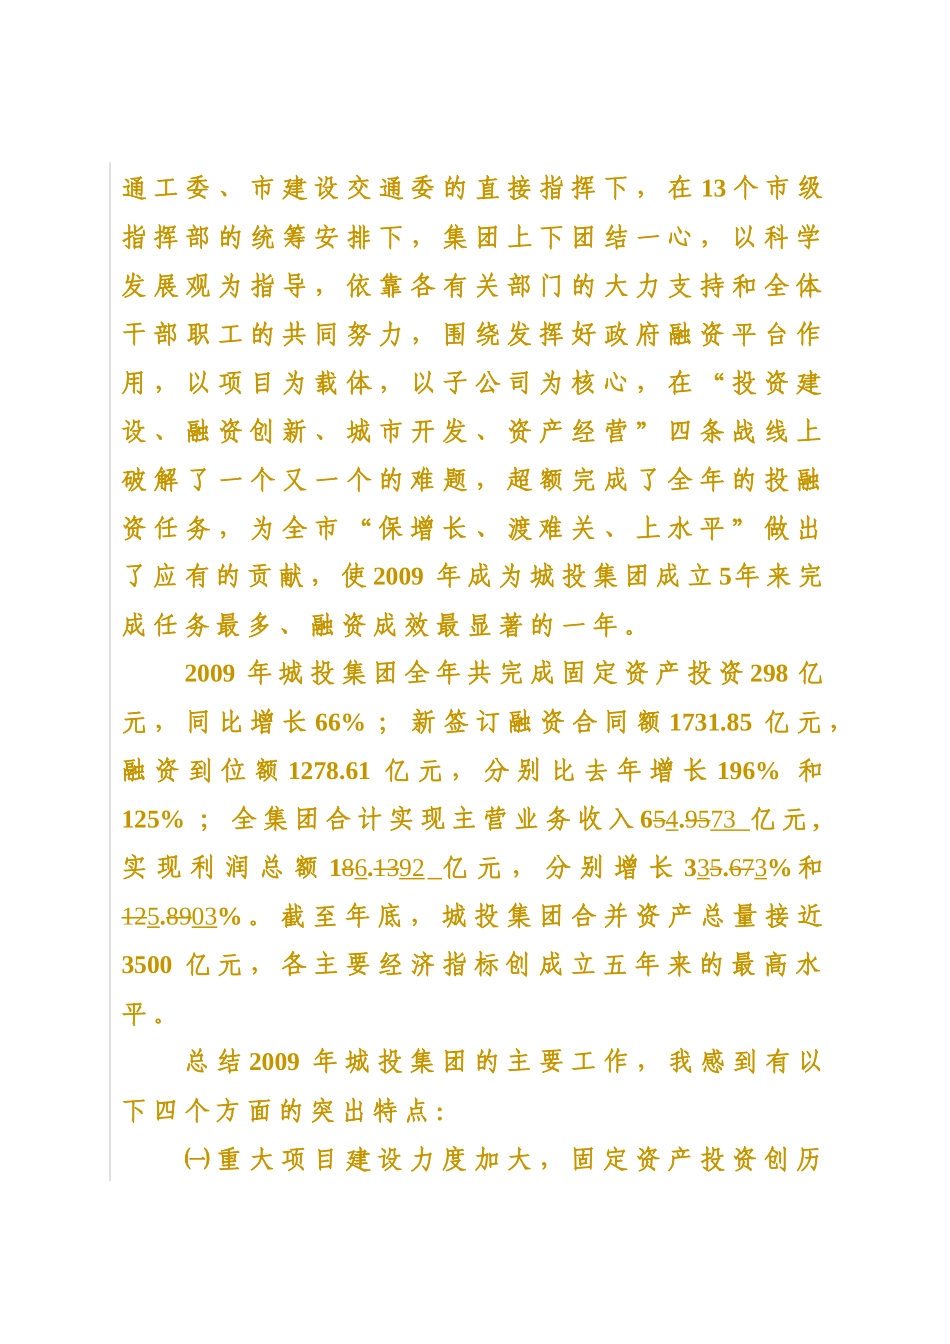 通工委、市建设交通委的直接指挥下，在13个市级
指挥部的统筹安排下，集团上下团结一心，以科学
发展观为指导，依靠各有关部门的大力支持和全体
干部职工的共同努力，围绕发挥好政府融资平台作
用，以项目为载体，以子公司为核心，在“投资建
设、融资创新、城市开发、资产经营”四条战线上
破解了一个又一个的难题，超额完成了全年的投融
资任务，为全市“保增长、渡难关、上水平”做出
了应有的贡献，使2009 年成为城投集团成立5年来完
成任务最多、融资成效最显著的一年。
2009 年城投集团全年共完成固定资产投资298 亿
元，同比增长66%；新签订融资合同额1731.85 亿元，
融资到位额1278.61 亿元，分别比去年增长196% 和
125%；全集团合计实现主营业务收入654.9573 亿元，
实现利润总额186.1392 亿元，分别增长335.673%和
125.8903%。截至年底，城投集团合并资产总量接近
3500 亿元，各主要经济指标创成立五年来的最高水
平。
总结2009 年城投集团的主要工作，我感到有以
下四个方面的突出特点：
㈠重大项目建设力度加大，固定资产投资创历